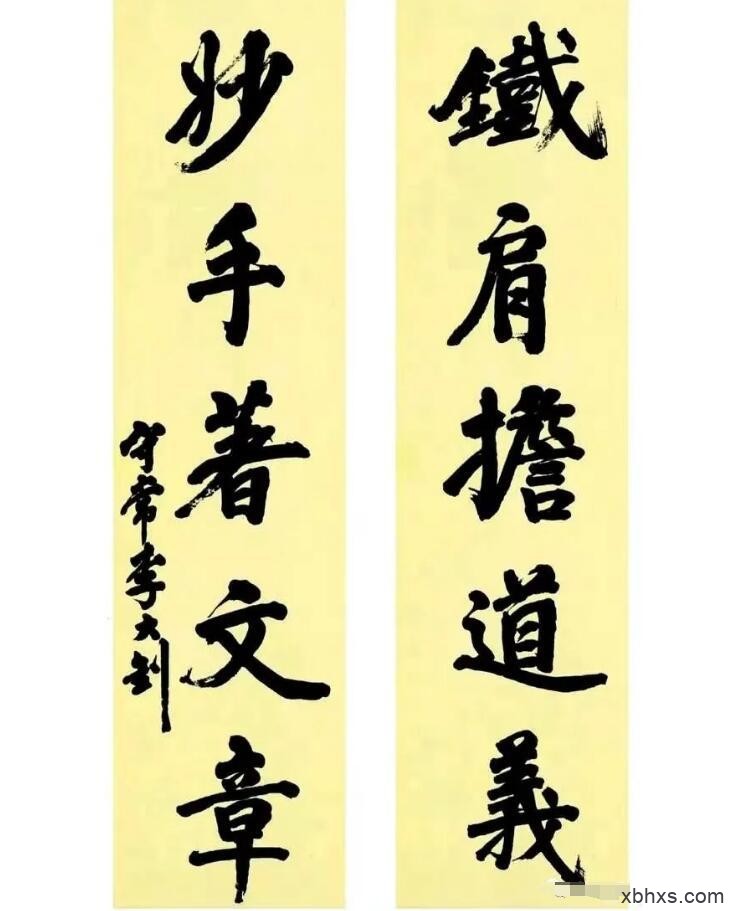 鐵肩擔道義
妙手著文章
守常李大釗
xbhxs.com